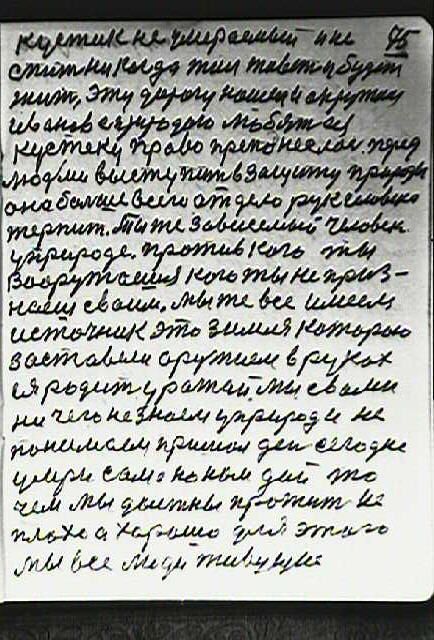 кустик не умираемый и не 45
спит никогда жил живет и будет
жит, эту дорогу нашел и окружил
Иванов
кустеку право преподнеслос перед
людми выступит в защиту природы
она болше всего от дело рук человека
терпит. Ты же зависемый человек
у природе. против кого ты
вооружился кого ты не приз-
наеш своим, мы же все имеем
источник это земля которою
заставели оружием в руках
ея родит урожай мы с вами
ни чего не знаем у природе не
понимаем пришол ден сегодне
умри само на ном дай то
чем мы должны прожит не
плохо а хорошо для этого
мы все люди живущие